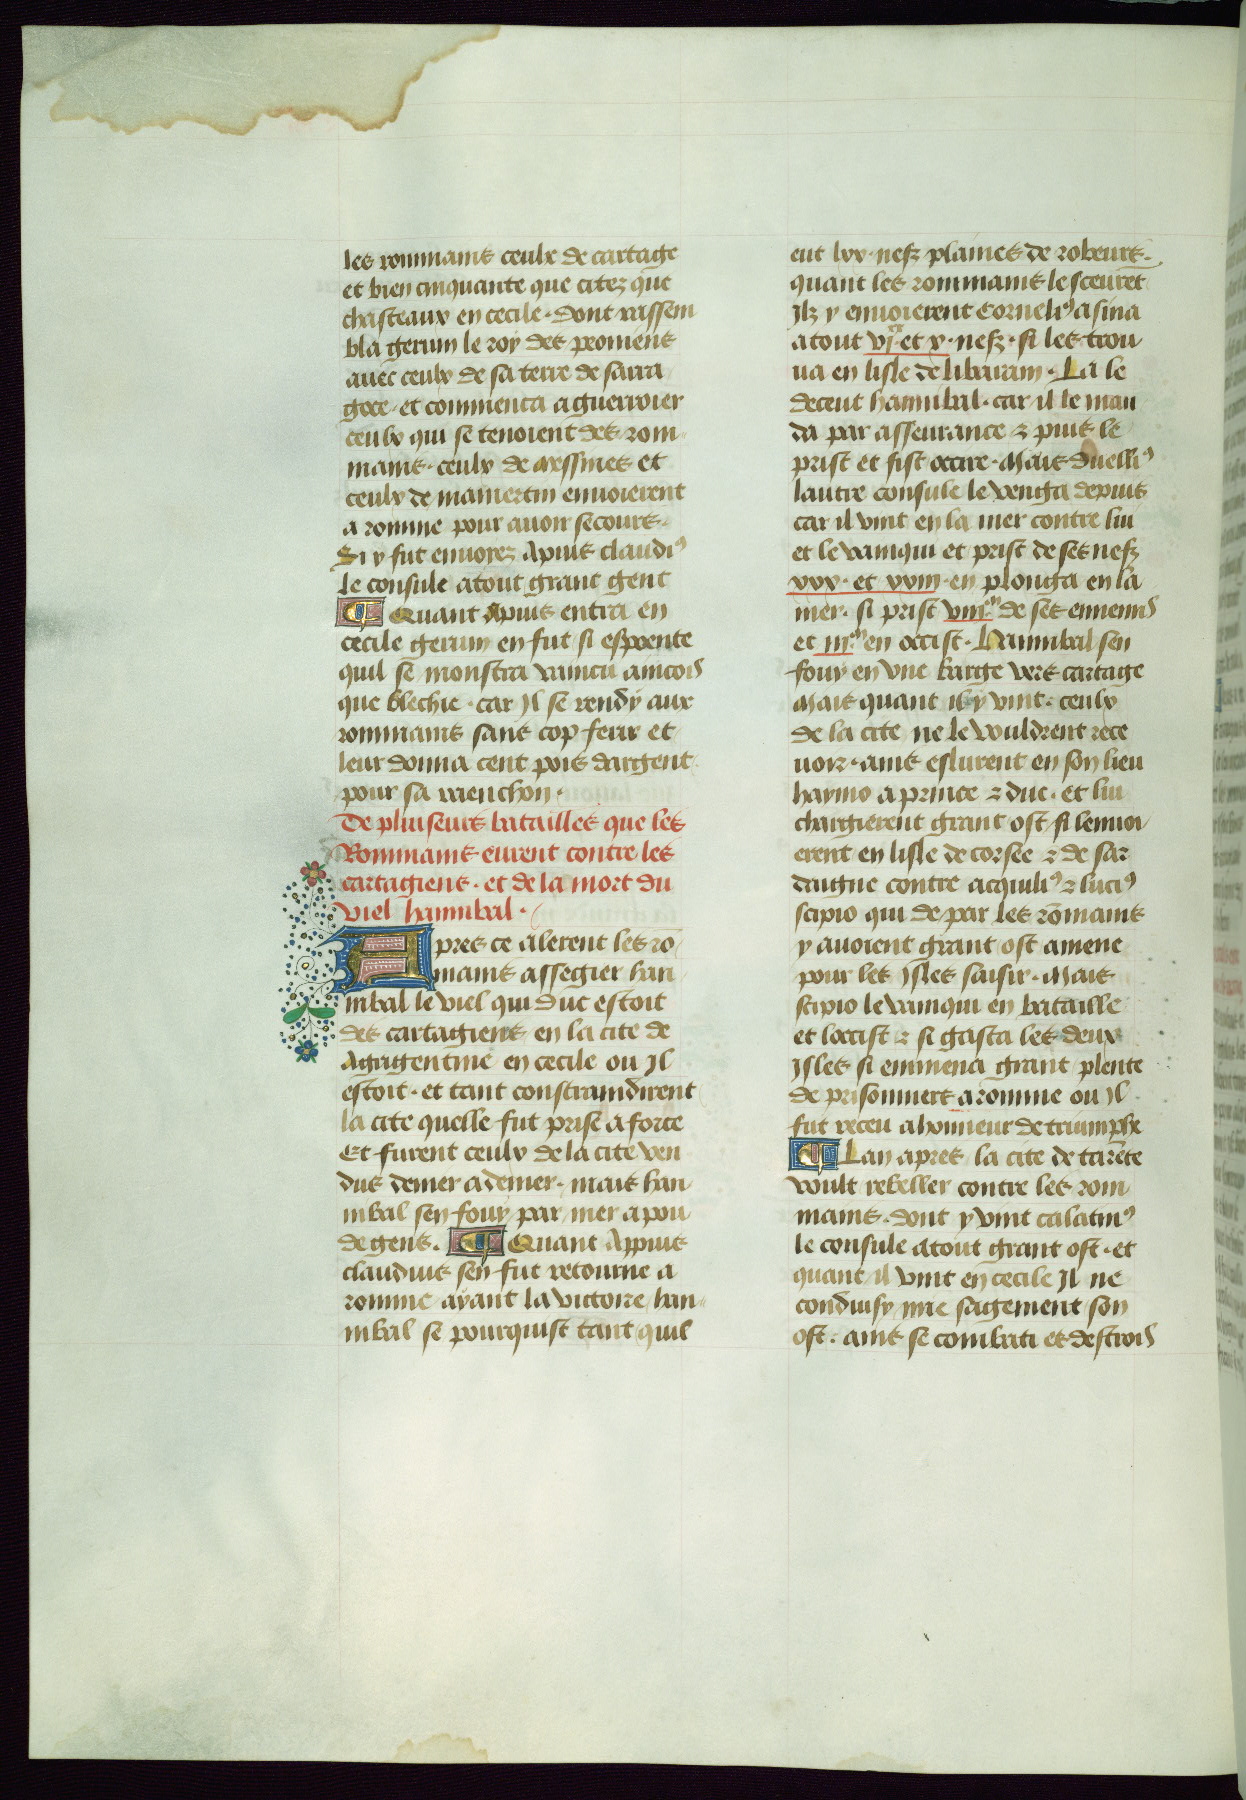 les rommains ceulx de cartage
et bien cinquante que citez que
chasteaux en cecile · dont rassem
bla gerum le roy des peoniens
auec ceulx de sa terre de sarra
goce · et commenca a guerroier
ceulx qui se tenoient des rom
mains · ceulx de messines et
ceulx de mamertin enuoierent
a romme pour auoir secours ·
Si y fut enuoyez Apius claudi⁹
le consule atout grant gent
¶ Quant Apius entra en
cecile gerum en fut si espoente
quil se monstra vaincu aincois
que blechie · car Il se rendy aux
rommains sans cop ferir et
leur donna cent pois dargent
pour sa raenchon ·
De pluiseurs batailles que les
Rommains eurent contre les
cartagiens · et de la mort du
viel hannibal ·
Apres ce alerent les ro
mains assegier han
nibal le viel qui duc estoit
des cartagiens en la cite de
Agrigentine en cecile ou Il
estoit · et tant constraindirent
la cite quelle fut prise a force
Et furent ceulx de la cite ven
dus denier a denier · mais han
nibal sen fouy par mer a pou
de gens · ¶ Quant Appius
claudius sen fut retourne a
romme ayant la victoire han
nibal se pourquist tant quil
eut lxx · nefz plaines de robeurs ·
quant les rommains le sceuret
Ilz y enuoierent Corneli⁹ asina
atout vj et x · nefz · si les trou
ua en lisle de libauram · La le
deceut hannibal · car il le man
da par asseurance ⁊ puis le
prist et fist occire · Mais Duelli⁹
lautre consule le venga depuis
car il vint en la mer contre lui
et le vainqui et prist de ses nefz
xxx · et xviii · en plonga en la
mer · si prist viii.ᵐ de ses ennemis
et iii.ᵐ en occist · Hannibal sen
fouy en vne barge vers cartage
Mais quant il y vint · ceulx
de la cite ne le vouldrent rece
uoir · ains eslurent en son lieu
haymo a prince ⁊ duc · et lui
chargierent grant ost / si lenuoi
erent en lisle de corsee ⁊ de sar
daigne contre acquili⁹ ⁊ luci⁹
scipio qui de par les rōmains
y auoient grant ost amene
pour les Isles saisir · Mais
scipio le vainqui en bataille
et loccist ⁊ si gasta les deux
Isles si emmena grant plente
de prisonniers a romme ou Il
fut receu a honneur de triumphe
¶ Lan apres la cite de tarēte
voult rebeller contre les rom
mains · dont y vint calatin⁹
le consule atout grant ost · et
quant il vint en cecile Il ne
conduisy mie sagement son
ost · ains se combati et destrois